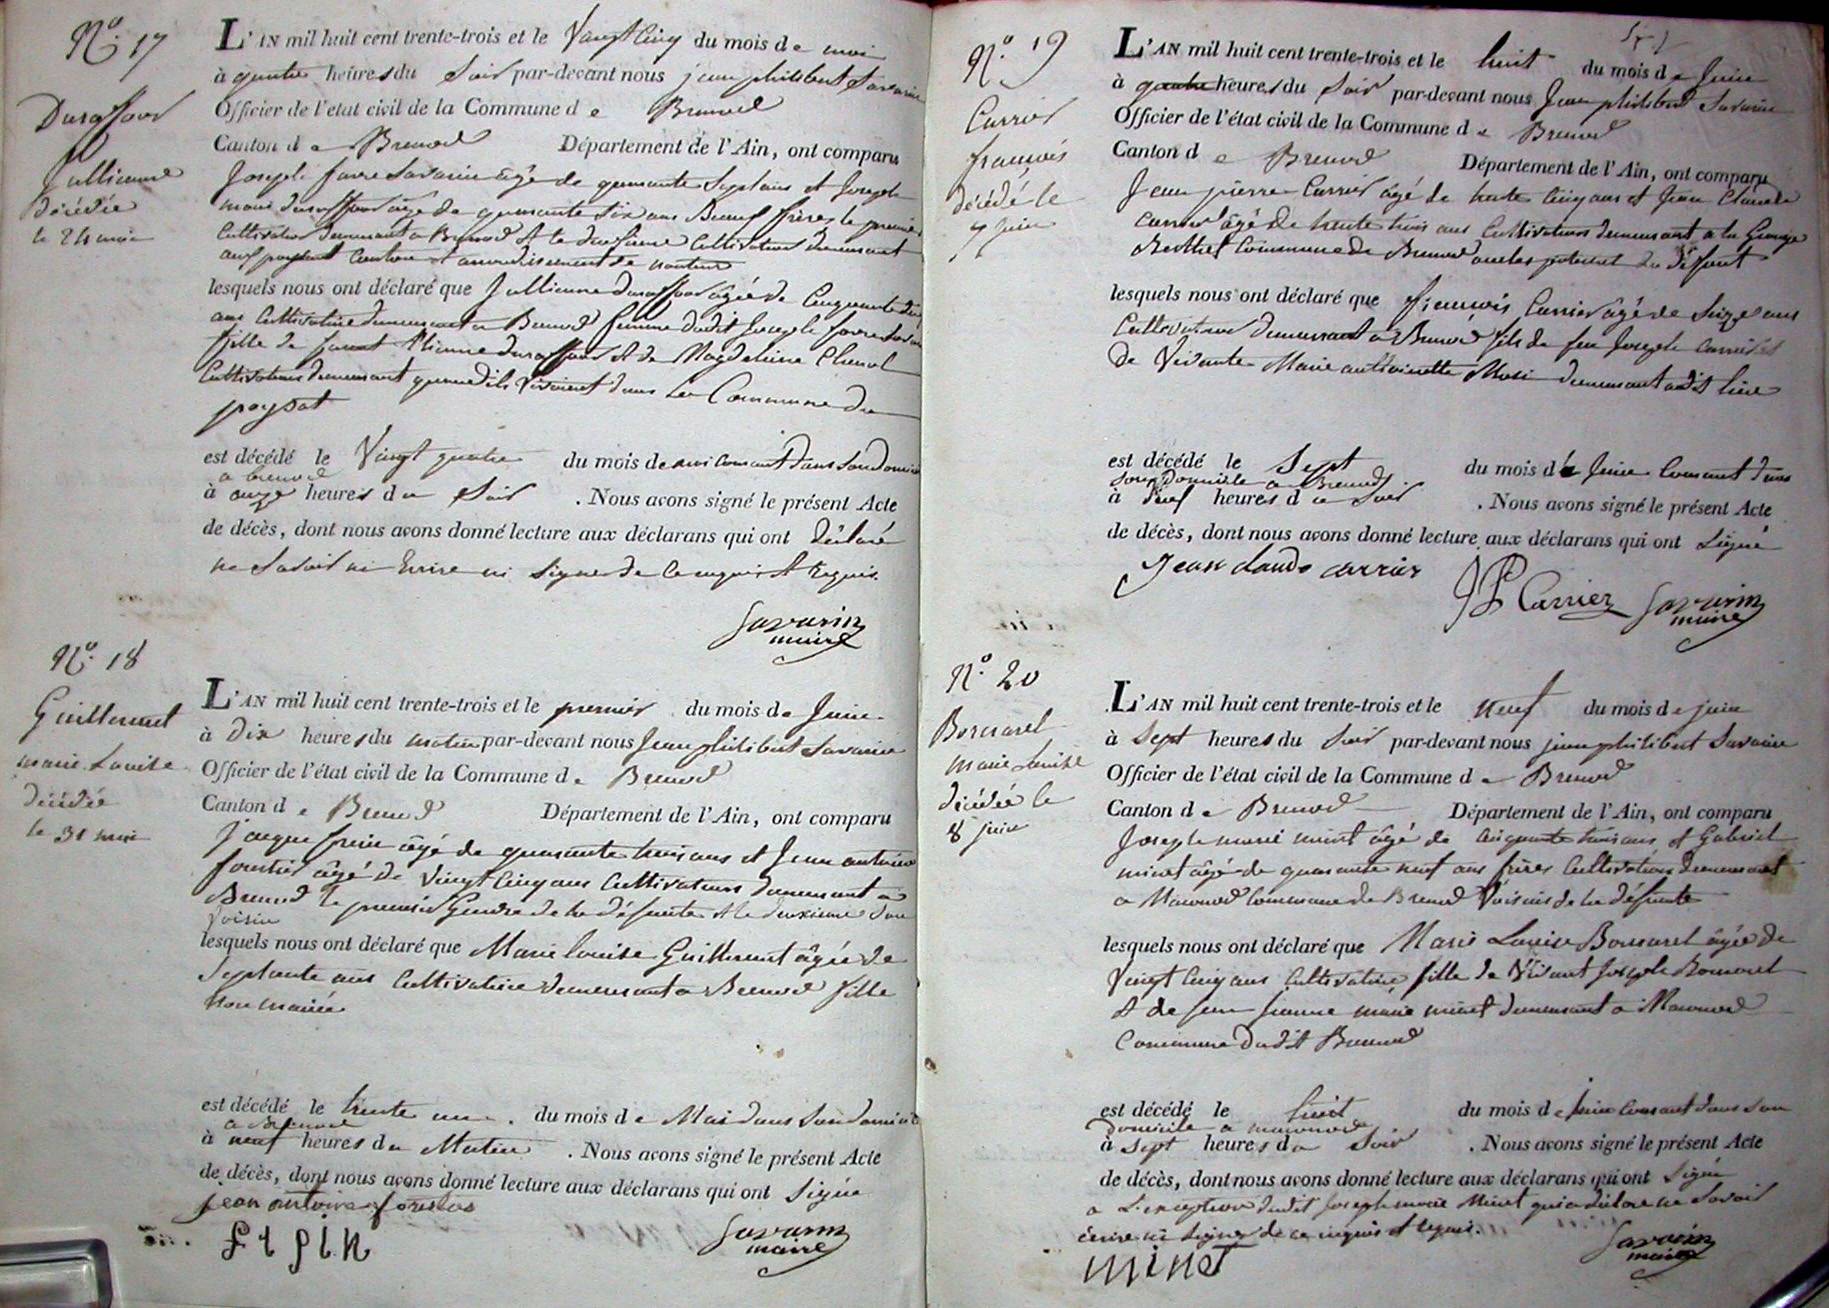 N.º 17
Durafour
Jullienne
décédée
le 24 mai
L'AN mil huit cent trente-trois et le Vingt Cinq du mois de mai
à quatre heures du Soir par-devant nous jean philibert Savarin
Officier de l'état civil de la Commune de Brenod
Canton de Brenod Département de l'Ain, ont comparu
Joseph favre Savarin âgé de quarante Sept ans et Joseph
marie durafour âgé de quarante six ans Beaux frères le premier
Cultivateur demeurant a Brenod et le deuxieme Cultivateur demeurant
au poysat Canton et arrondissement de nantua
lesquels nous ont déclaré que Jullienne durafour âgée de Cinquante
ans Cultivatrice demeurant a Brenod femme dudit Joseph favre Savarin
fille de Etienne durafour et de Magdeleine Chenol
Cultivateurs demeurant quand ils vivaient dans la Commune du
poysat
est décédé le Vingt quatre du mois de mai Courant dans Son Domicile
a brenod
à onze heures du Soir. Nous avons signé le présent Acte
de décès, dont nous avons donné lecture aux déclarans qui ont déclaré
ne Savoir ni Ecrire ni signer de Ce enquis et requis.
Savarin
maire
N.º 18
Guillermet
marie Louise
décédée
le 31 mai
L'AN mil huit cent trente-trois et le premier du mois de Juin
à dix heures du matin par-devant nous Jean philibert Savarin
Officier de l'état civil de la Commune de Brenod
Canton de Brenod Département de l'Ain, ont comparu
Jacque âgé de quarante trois ans et Jean antoine
âgé de Vingt Cinq ans Cultivateurs demeurant a
Brenod le premier Gendre de la défunte et le deuxieme Son
Voisin
lesquels nous ont déclaré que Marie louise Guillermet âgée de
Septante ans Cultivatrice demeurant a Brenod fille
non mariée
est décédé le trente un du mois de Mai dans Son domicile
a Brenod
à neuf heures du Matin. Nous avons signé le présent Acte
de décès, dont nous avons donné lecture aux déclarans qui ont Signé
jean antoine
Savarin
maire
N.º 19
Carrier
françois
décédé le
7 juin
L'AN mil huit cent trente-trois et le huit du mois de Juin
à quatre heures du Soir par-devant nous Jean philibert Savarin
Officier de l'état civil de la Commune de Brenod
Canton de Brenod Département de l'Ain, ont comparu
Jean pierre Carrier âgé de trente Cinq ans et Jean Claude
Carrier âgé de trente trois ans Cultivateurs demeurant a la Grange
Berthet Commune de Brenod oncles paternel du défunt
lesquels nous ont déclaré que françois Carrier âgé de Seize ans
Cultivateur demeurant a Brenod fils de feu Joseph Carrier et
de Vivante Marie anthoinette demeurant audit lieu
est décédé le Sept du mois de Juin Courant dans
Son Domicile a Brenod
à neuf heures du Soir. Nous avons signé le présent Acte
de décès, dont nous avons donné lecture aux déclarans qui ont Signé
Jean claude carrier
JP Carrier Savarin
maire
N.º 20
Bonnarel
marie Louise
décédée le
8 juin
L'AN mil huit cent trente-trois et le neuf du mois de juin
à Sept heures du Soir par-devant nous jean philibert Savarin
Officier de l'état civil de la Commune de Brenod
Canton de Brenod Département de l'Ain, ont comparu
Joseph marie minet âgé de Cinquante trois ans et Gabriel
minet âgé de quarante neuf ans frères Cultivateurs demeurant
a Macconod Commune de Brenod Voisins de la défunte
lesquels nous ont déclaré que Marie Louise Bonnarel âgée de
Vingt Cinq ans Cultivatrice fille de Vivant Joseph Bonnarel
et de feue jeanne marie minet demeurant a Macconod
Commune dudit Brenod
est décédé le huit du mois de juin Courant dans Son
domicile a macconod
à Sept heures du Soir. Nous avons signé le présent Acte
de décès, dont nous avons donné lecture aux déclarans qui ont Signé
a L'exception dudit Joseph marie Minet qui a déclaré ne Savoir
écrire ni Signer de ce enquis et requis.
minet
Savarin
maire